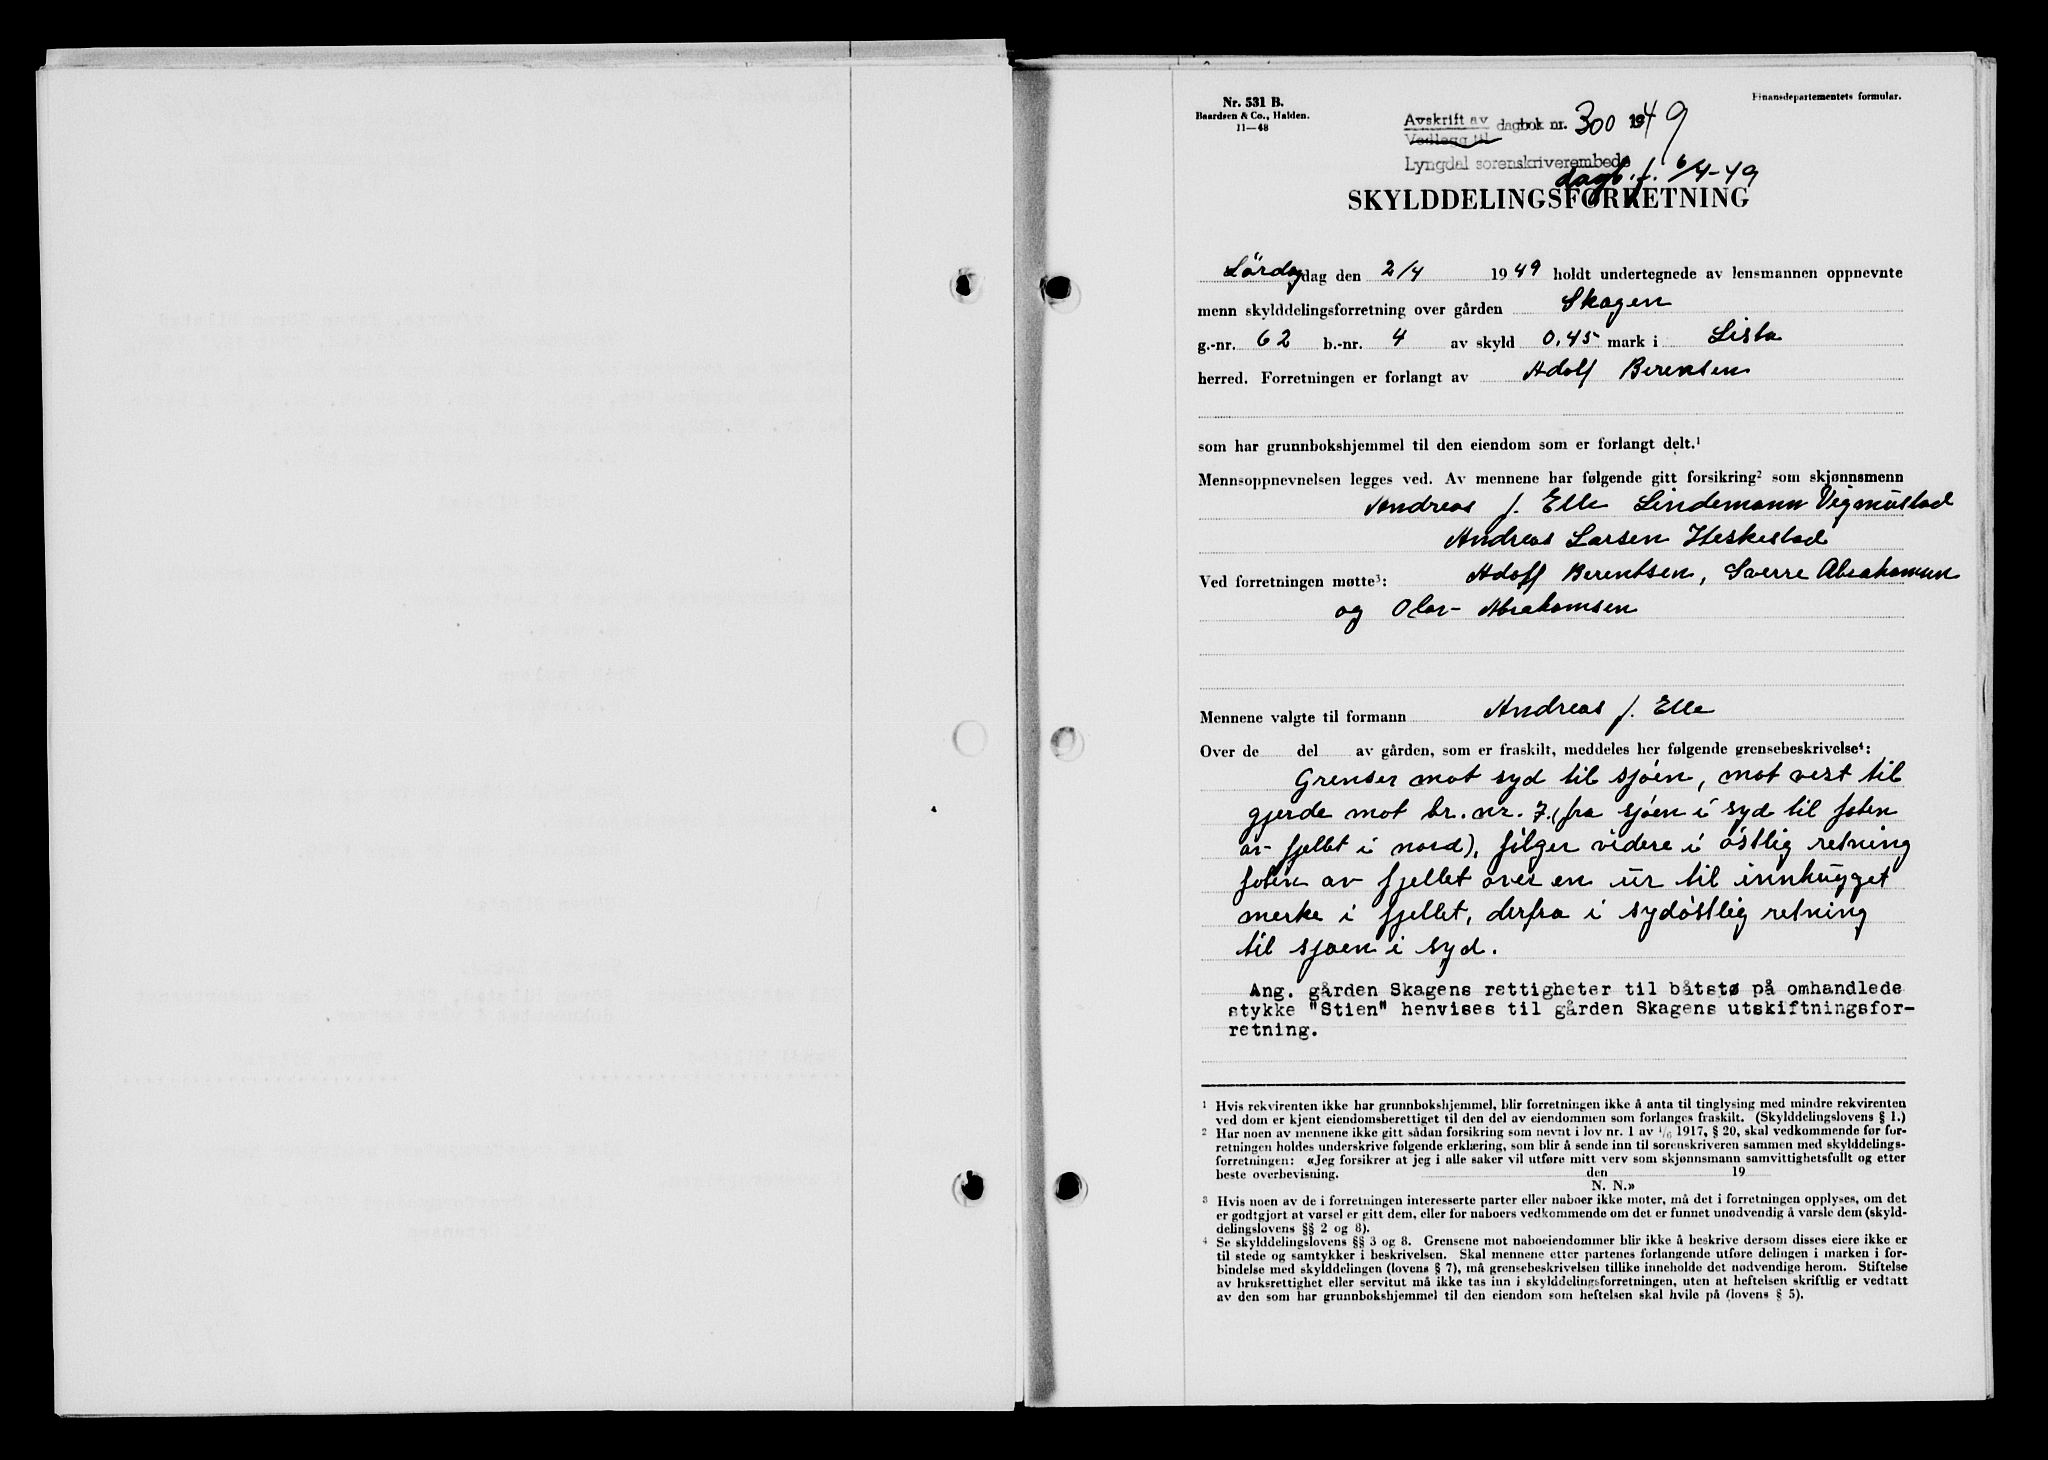 Nr. 531 B.
Baardsen & Co., Halden.
11—48
Finansdepartementets formular.
Avskrift av
Vedlegg til
dagbok nr. 300 1949
Lyngdal sorenskriverembede
dagb. f. 6/4-49
SKYLDDELINGSFORRETNING
Lördagdag den 2/4 1949 holdt undertegnede av lensmannen oppnevnte
menn skylddelingsforretning over gården Skagen
g.-nr. 62 b.-nr. 4 av skyld 0,45 mark i Lista
herred. Forretningen er forlangt av Adolf Berentsen
som har grunnbokshjemmel til den eiendom som er forlangt delt.¹
Mennsoppnevnelsen legges ved. Av mennene har følgende gitt forsikring² som skjønnsmenn
Andreas J. Elle Lindemann Vigmostad
Andreas Larsen Heskestad
Ved forretningen møtte³: Adolf Berentsen, Sverre Abrahamsen
og Olav Abrahamsen
Mennene valgte til formann Andreas J. Elle
Over de del av gården, som er fraskilt, meddeles her følgende grensebeskrivelse⁴:
Grenser mot syd til sjöen, mot vest til
gjerde mot br. nr. 7. (fra sjöen i syd til foten
av fjellet i nord), fölger videre i östlig retning
foten av fjellet over en ur til innhugget
merke i fjellet, derfra i sydöstlig retning
til sjöen i syd.
Ang. gården Skagens rettigheter til båtstø på omhandlede
stykke "Stien" henvises til gården Skagens utskiftningsfor-
retning.
¹ Hvis rekvirenten ikke har grunnbokshjemmel, blir forretningen ikke å anta til tinglysing med mindre rekvirenten
ved dom er kjent eiendomsberettiget til den del av eiendommen som forlanges fraskilt. (Skylddelingslovens § 1.)
² Har noen av mennene ikke gitt sådan forsikring som nevnt i lov nr. 1 av ¹/₆ 1917, § 20, skal vedkommende før for-
retningen holdes underskrive følgende erklæring, som blir å sende inn til sorenskriveren sammen med skylddelings-
forretningen: «Jeg forsikrer at jeg i alle saker vil utføre mitt verv som skjønnsmann samvittighetsfullt og etter
beste overbevisning. den 19
N. N.»
³ Hvis noen av de i forretningen interesserte parter eller naboer ikke møter, må det i forretningen opplyses, om det
er godtgjort at varsel er gitt dem, eller for naboers vedkommende om det er funnet unødvendig å varsle dem (skyld-
delingslovens §§ 2 og 8).
⁴ Se skylddelingslovens §§ 3 og 8. Grensene mot naboeiendommer blir ikke å beskrive dersom disses eiere ikke er
til stede og samtykker i beskrivelsen. Skal mennene etter partenes forlangende utføre delingen i marken i for-
bindelse med skylddelingen (lovens § 7), må grensebeskrivelsen tillike inneholde det nødvendige herom. Stiftelse
av bruksrettighet eller servitut må ikke tas inn i skylddelingsforretningen, uten at heftelsen skriftlig er vedtatt
av den som har grunnbokshjemmel til den eiendom som heftelsen skal hvile på (lovens § 5).